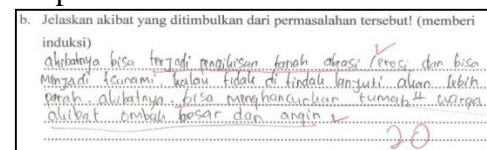 b. Jelaskan akibat yang ditimbulkan dari permasalahan tersebut! (memberi
induksi)
akibatnya bisa terjadi pengikisan tanah abrasi / erosi dan bisa
menjadi tsunami, kalau tidak di tindak lanjuti akan lebih
parah akibatnya bisa menghancurkan rumah" warga
akibat ombak besar dan angin
20